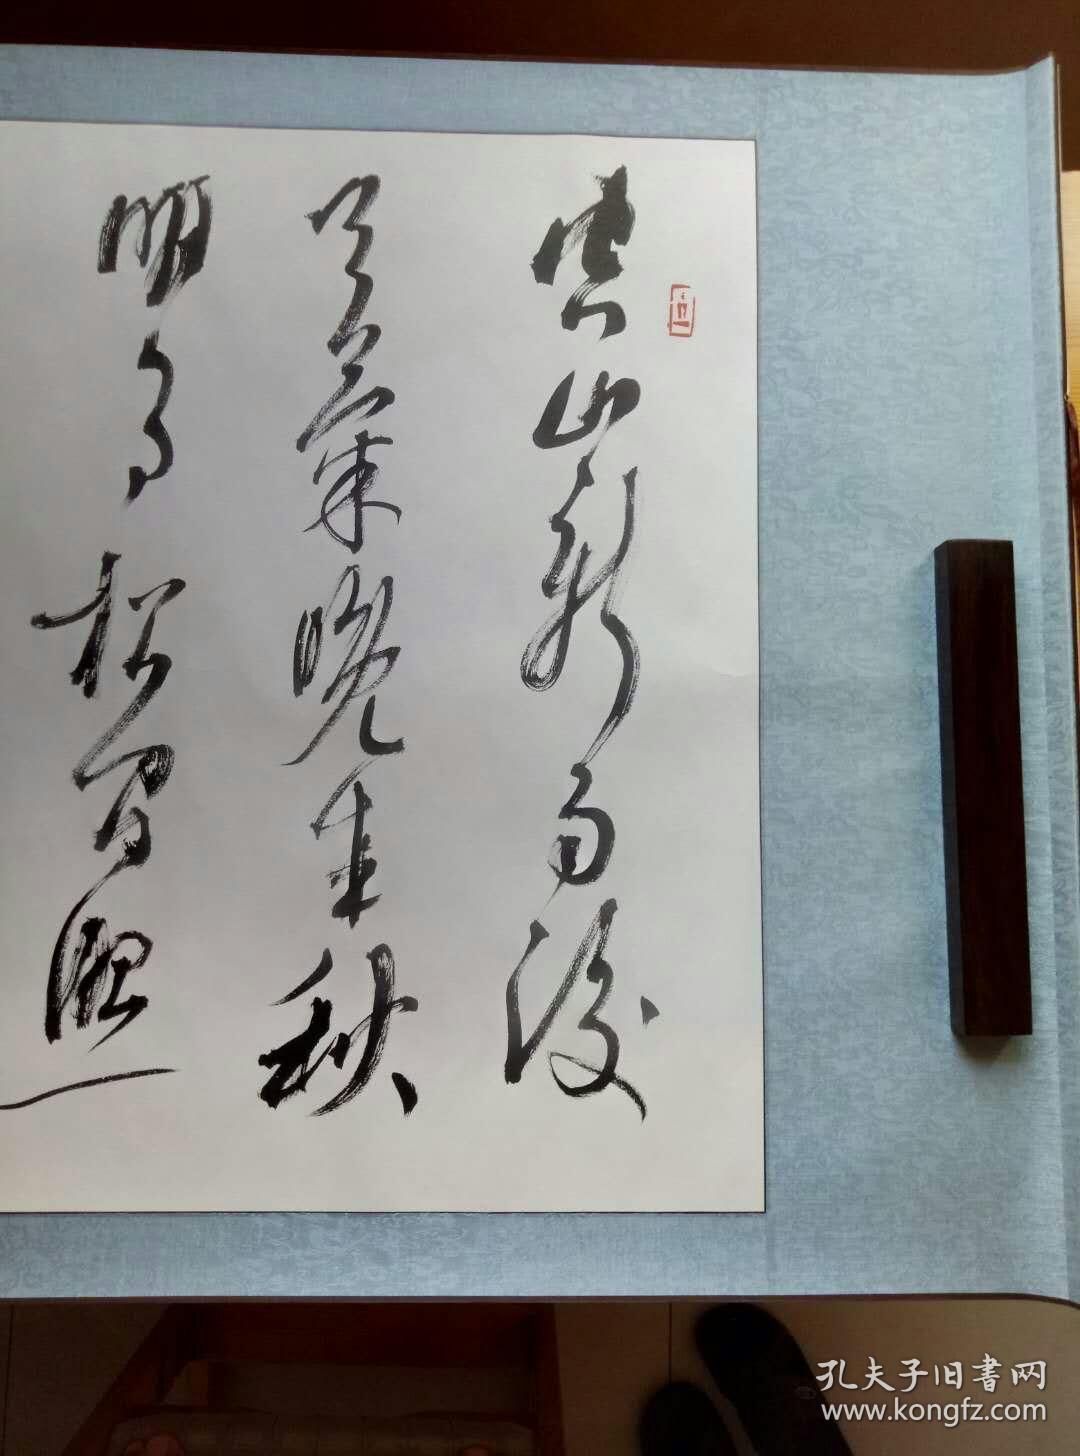 空山新雨後
天氣晚来秋
明月松间照
孔夫子旧書网
www.kongfz.com